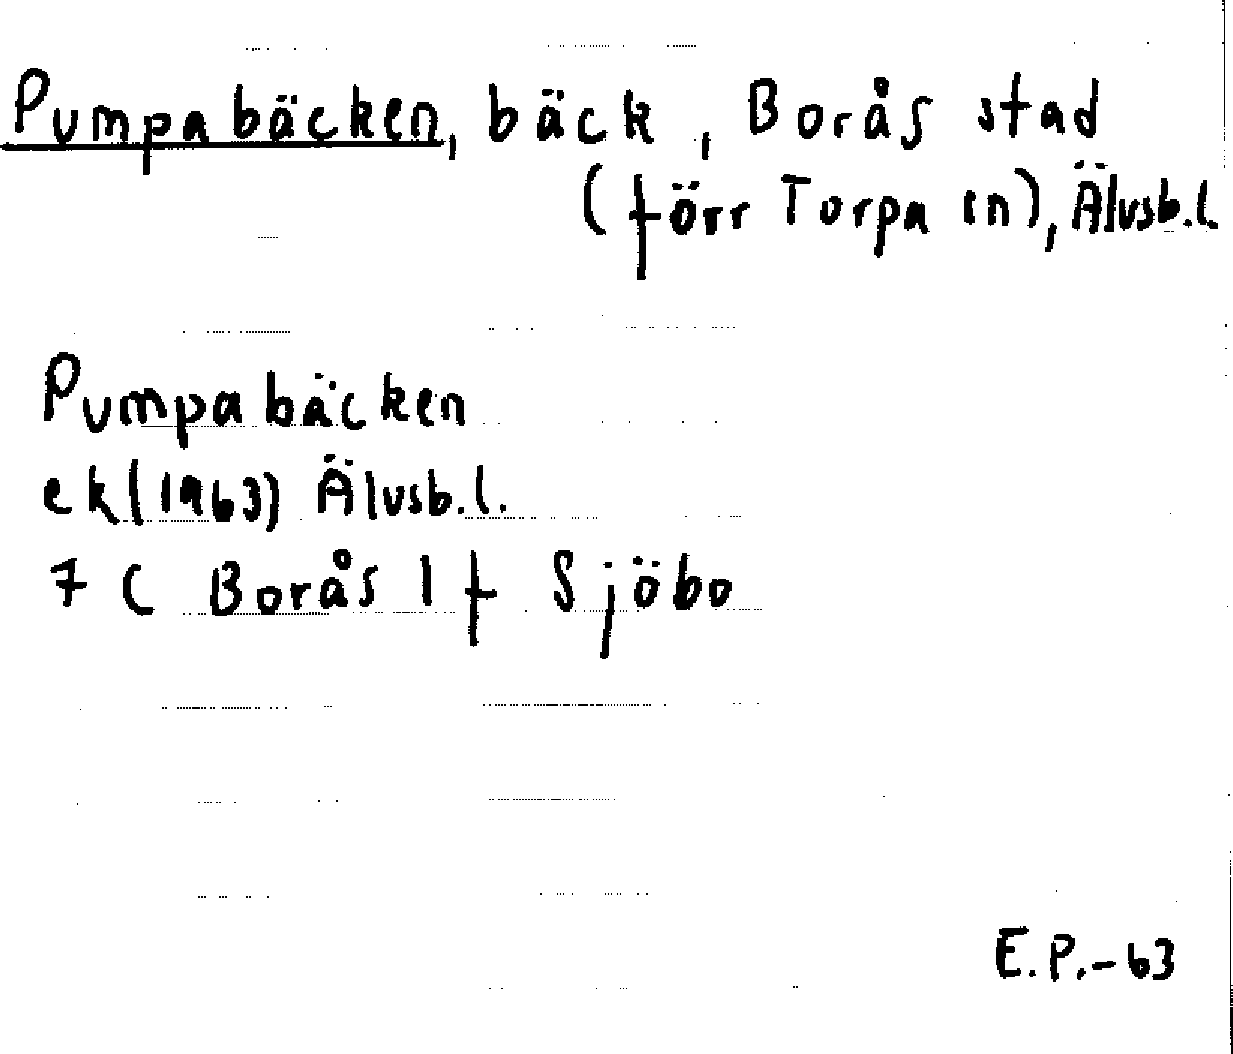 Pumpabäcken, bäck, Borås stad
(förr Torpa sn), Älvsb.l.
Pumpabäcken
ek(1963) Älvsb.l.
7 C Borås 1 f Sjöbo
E.P.-63